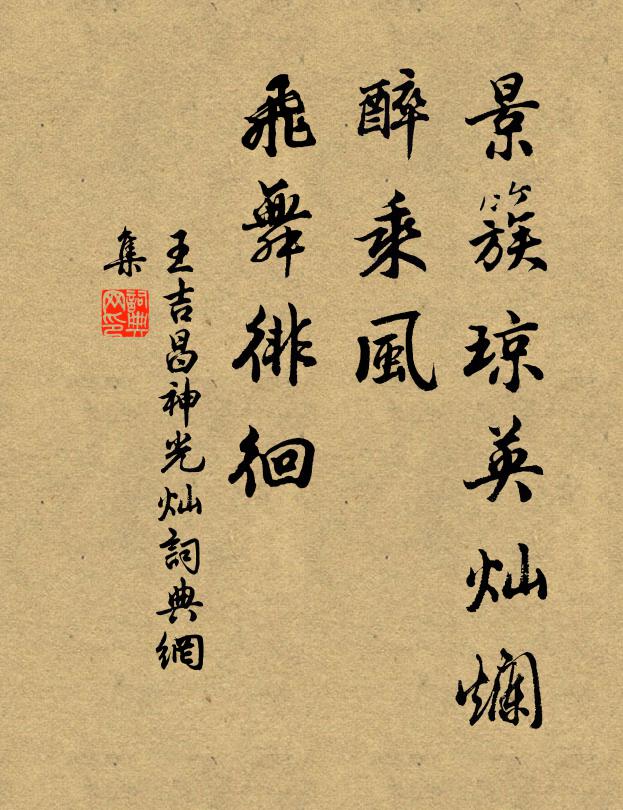 景簇琼英灿爛
醉乘風
飛舞徘徊
王吉昌神光灿詞典網
集
詞典
网印